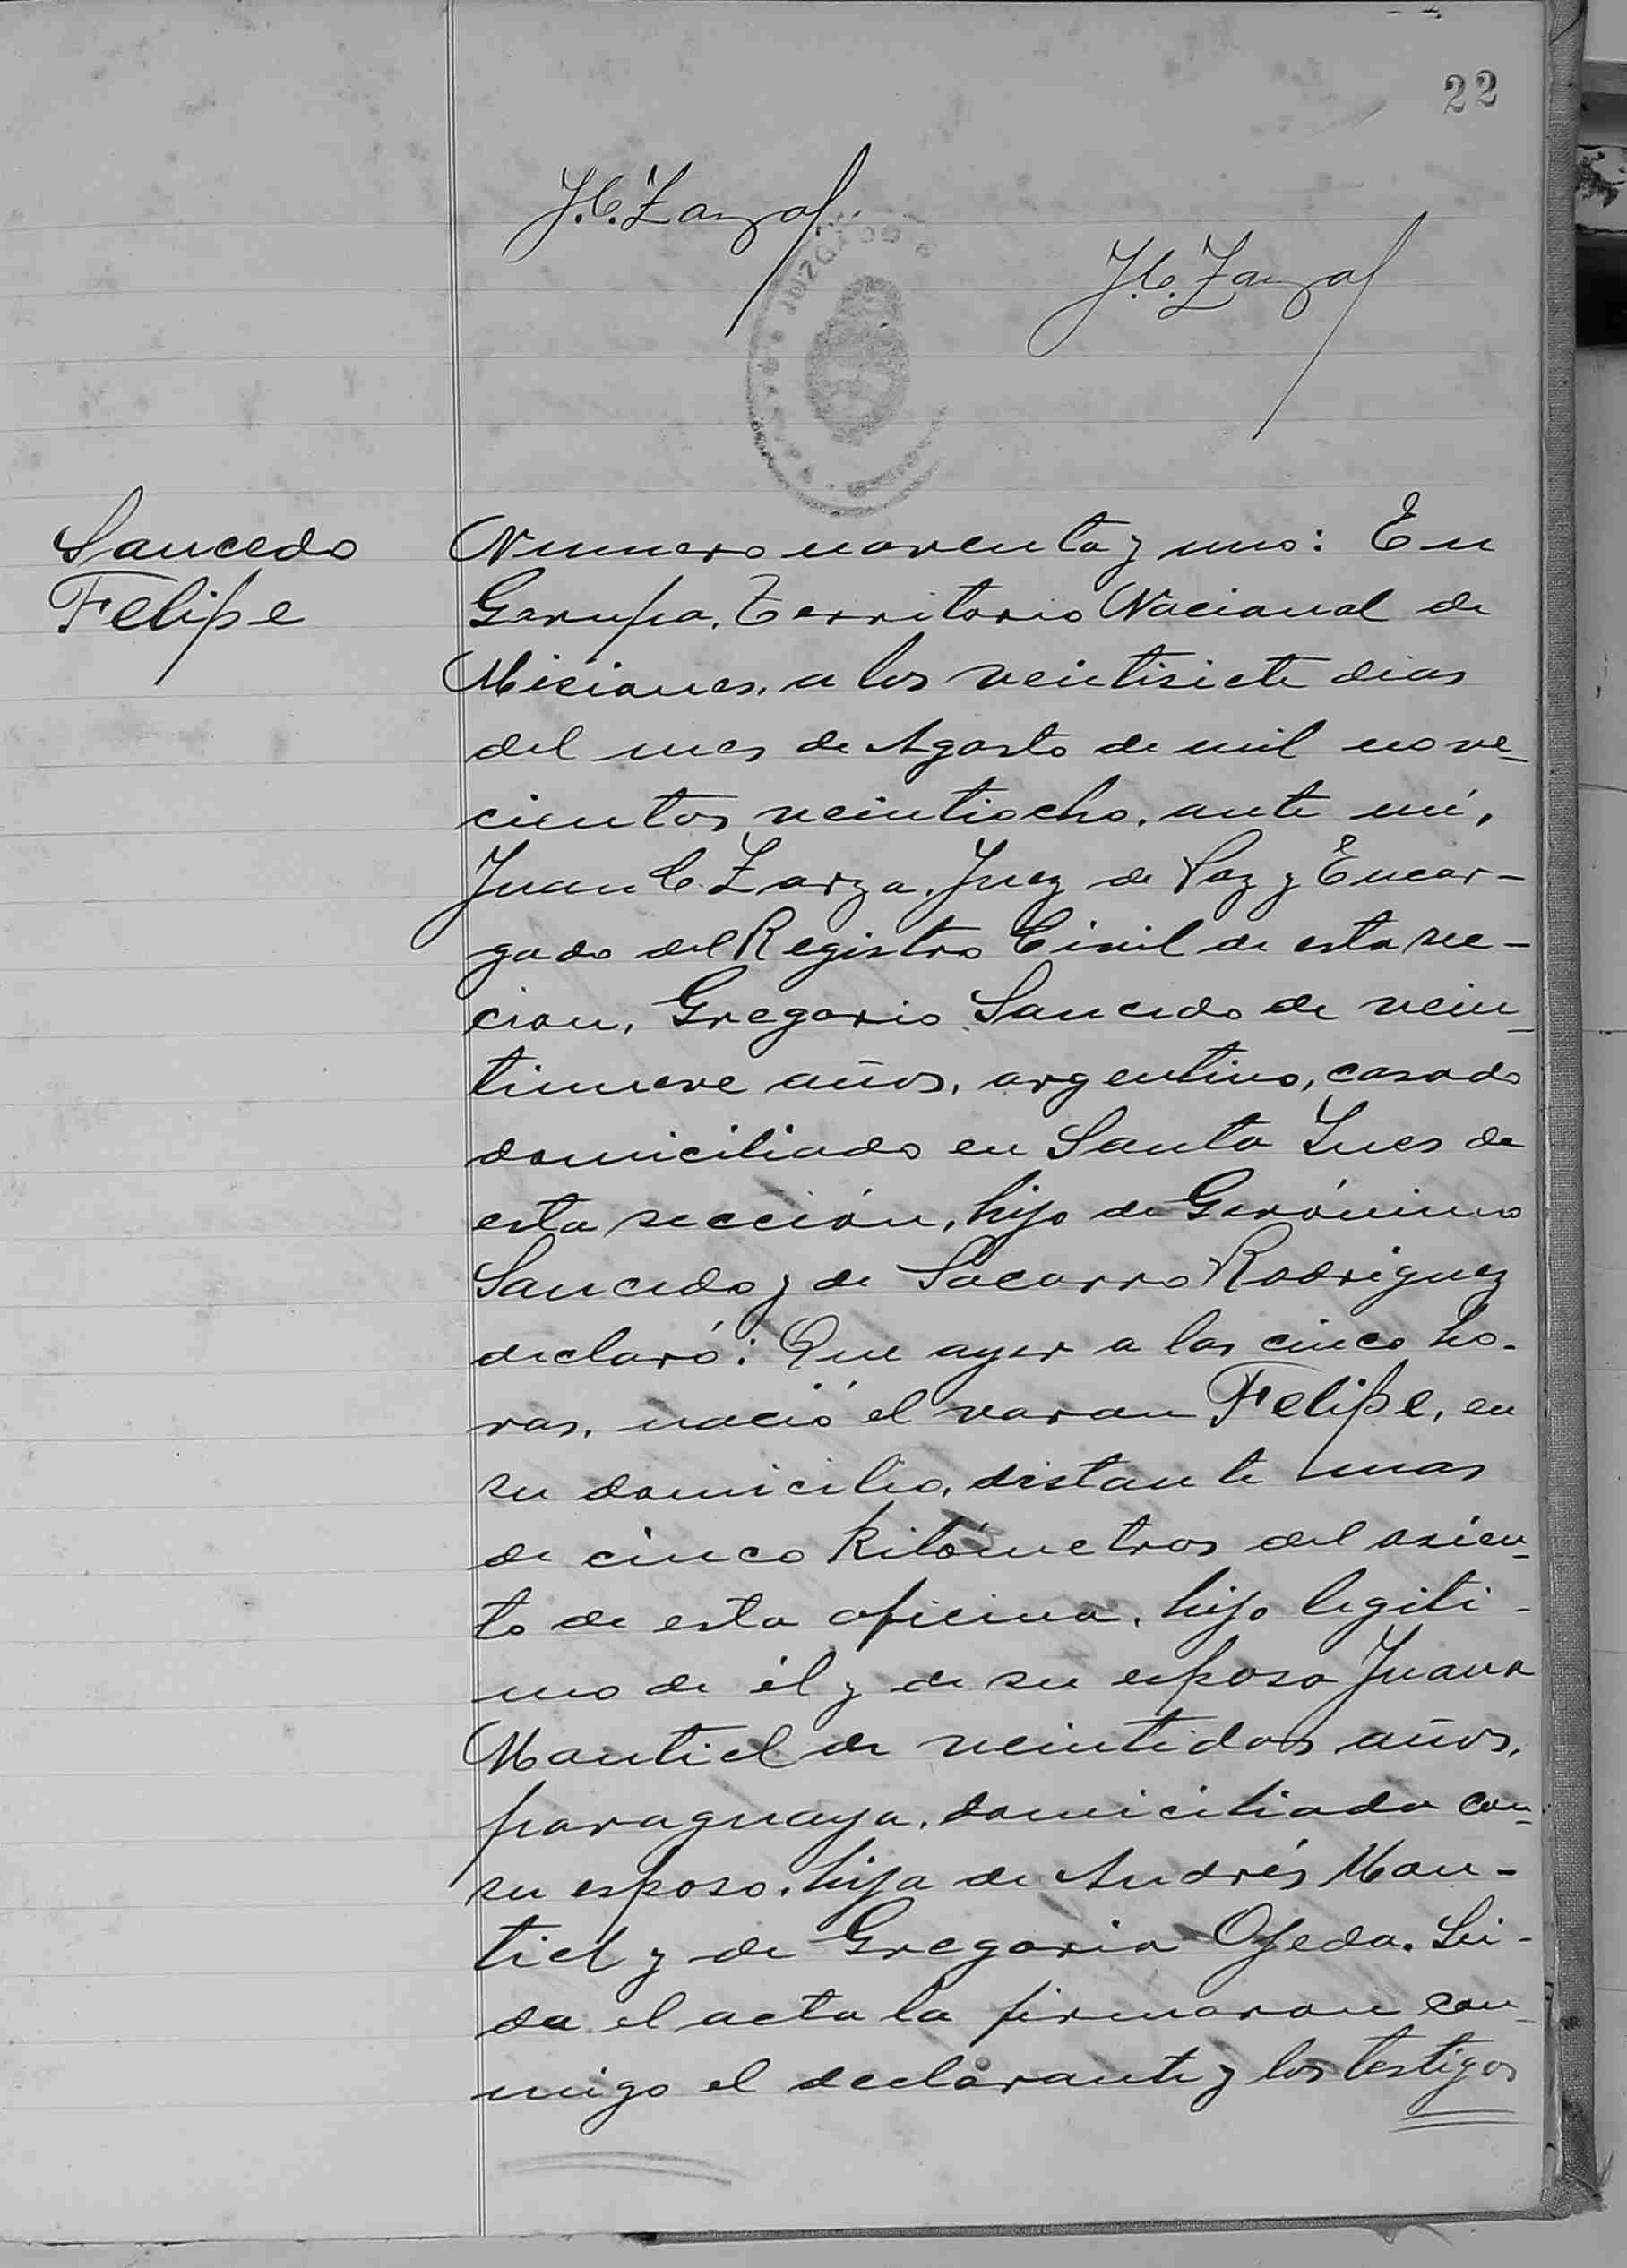 22
J.C. Zarza
J.C. Zarza
JUZGADO
Saucedo
Felipe
Numero noventa y uno: En
Garupa, Territorio Nacional de
Misiones, a los veintisiete dias
del mes de Agosto de mil nove-
cientos veintiocho, ante mi,
Juan C. Zarza, Juez de Paz y Encar-
gado del Registro Civil de esta sec-
cion, Gregorio Saucedo de vein-
tinueve años, argentino, casado
domiciliado en Santa Ines de
esta sección, hijo de Gerónimo
Saucedo y de Socorro Rodriguez
declaró: Que ayer a las cinco ho-
ras, nació el varon Felipe, en
su domicilio, distante mas
de cinco kilómetros del asien-
to de esta oficina, hijo legiti-
mo de él y de su esposa Juana
Montiel de veintidos años,
paraguaya, domiciliada con
su esposo, hija de Andrés Mon-
tiel y de Gregoria Ojeda. Lei-
da el acta la firmaron con-
migo el declarante y los testigos